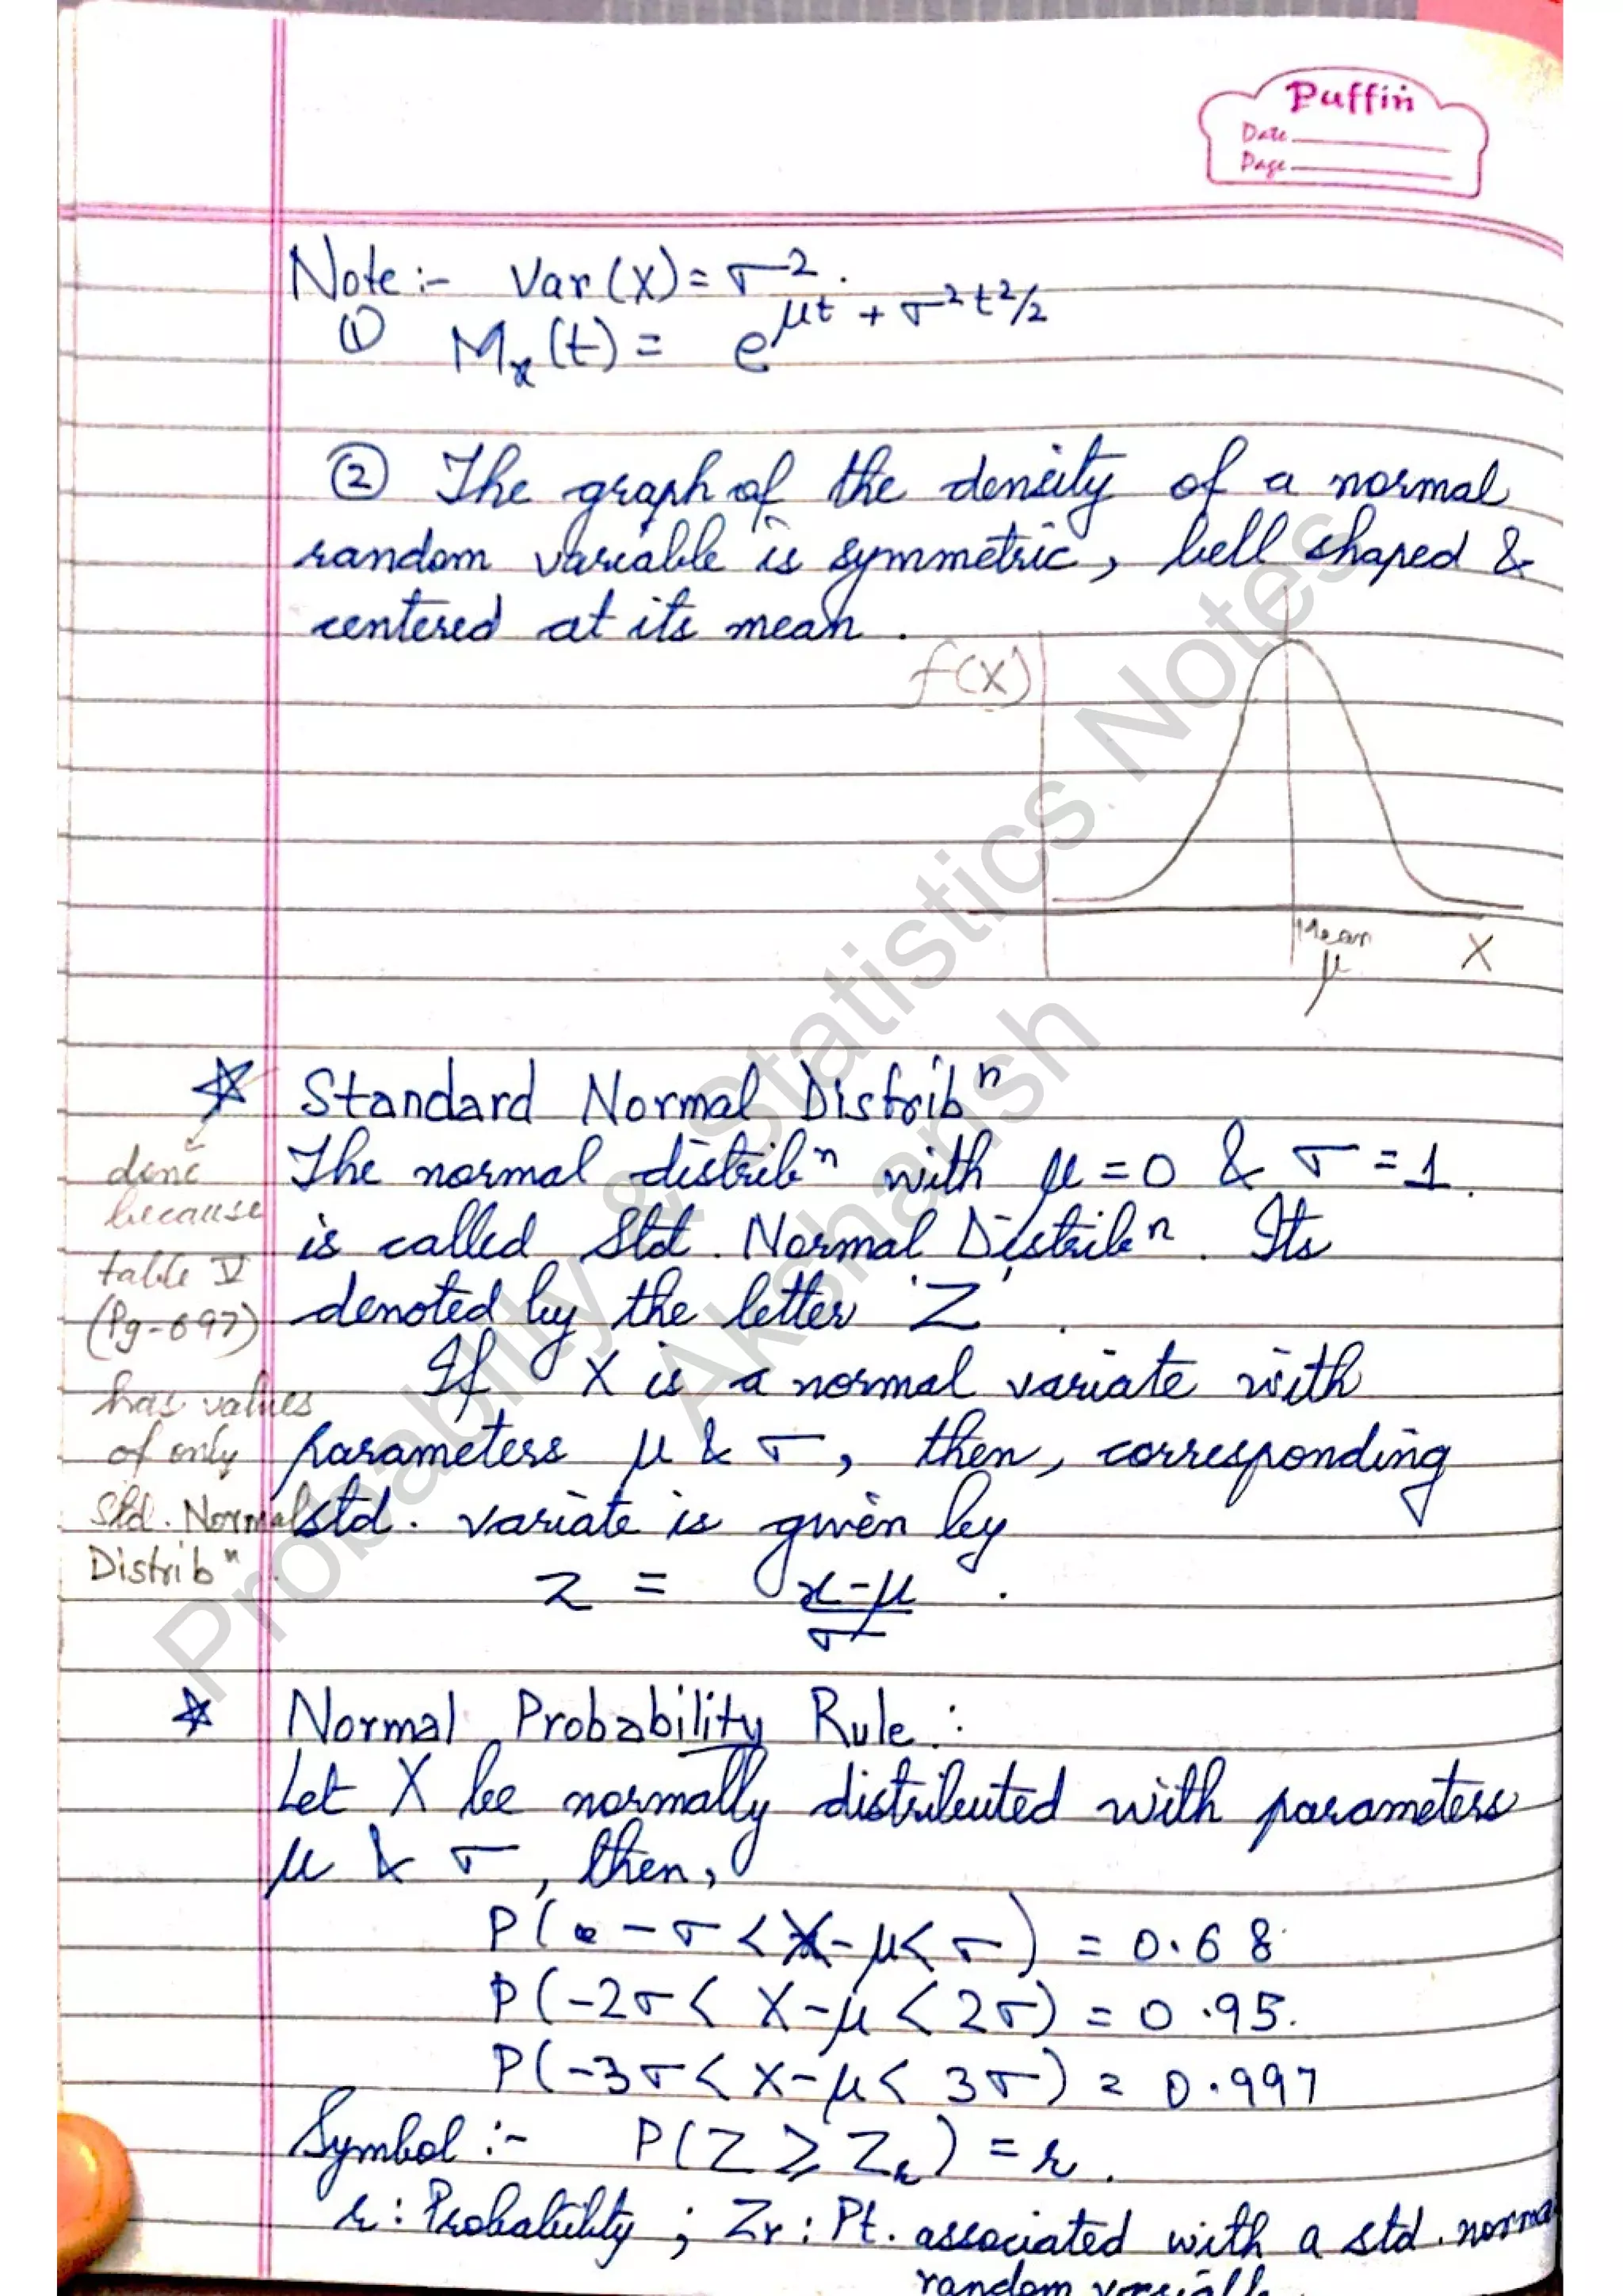 Puffin
Date
Page
Note :- Var (X) = σ².
① Mx (t) = e^μt + σ²t²/2
② The graph of the density of a normal
random variable is symmetric, bell shaped &
centered at its mean.
f(x)
Mean
μ
X
☆ Standard Normal Distribⁿ
The normal distribⁿ with μ = 0 & σ = 1.
is called Std. Normal Distribⁿ. Its
denoted by the letter 'Z'.
If X is a normal variate with
parameters μ & σ, then, corresponding
std. variate is given by
z = x-μ/σ.
done
because
table V
(Pg-697)
has values
of only
Std. Normal
Distribⁿ.
☆ Normal Probability Rule :
Let X be normally distributed with parameters
μ & σ, then,
P( -σ < X-μ < σ) = 0.68
P(-2σ < X-μ < 2σ) = 0.95.
P(-3σ < X-μ < 3σ) = 0.997
Symbol :- P(Z ≥ Zr) = r.
r : Probability ; Zr : Pt. associated with a std. normal
random variable
Probability & Statistics Notes
Akshansh